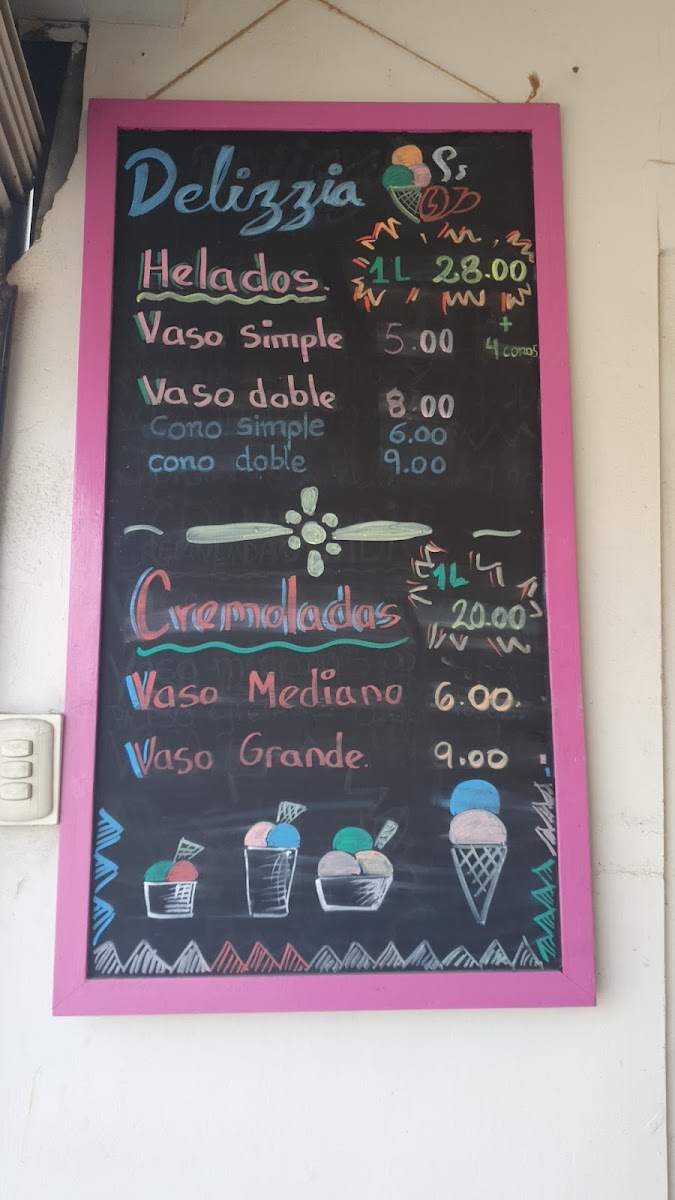 Delizzia
Helados. 1L 28.00
+
4 conos
Vaso simple 5.00
Vaso doble 8.00
Cono simple 6.00
cono doble 9.00
1L
Cremoladas 20.00
Vaso Mediano 6.00.
Vaso Grande. 9.00